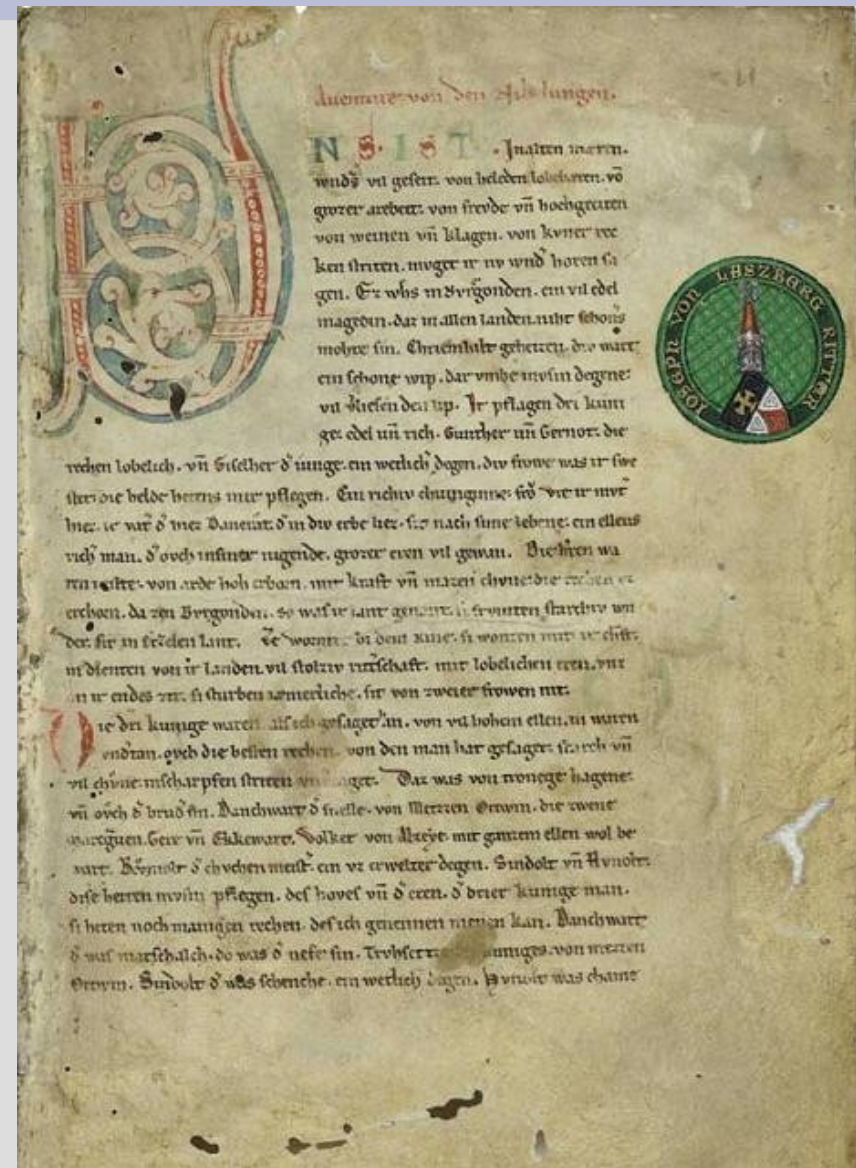 Auenture von den Nibelungen.
VNS. IST. In alten mæren.
wnds vil geseit. von heleden lobebæren. võ
grozer arebeit. von frevde vñ hochgeciten
von weinen vñ klagen. von kvner rec
ken striten. mvget ir nv wnd horen sa
gen. Ez whs in Bvrgonden. ein vil edel
magedin. daz in allen landen. niht schons
mohte sin. Chriemhilt geheizen. div wart
ein schone wip. dar vmbe mvsin degene
vil verliesen den lip. Ir pflagen dri kuni
ge. edel uñ rich. Gunther uñ Gernot. die
rechen lobelich. vñ Giselher d iunge. ein wetlich degen. div frowe was ir swe
ster die helde hetens inir pflegen. Ein richiv chuniginne. frŏ Vte ir mvt
hiez. ir vat d hiez Dancrat. d in div erbe liez. sit nach sime lebene. ein ellens
rich man. d ovch in siner iugende. grozer eren vil gewan. Die hren wa
ren milte. von arde hoh erborn. mit kraft vñ mazen chvne. die rechen vz
erchorn. da zen Bvrgonden. so was ir lant genant. si frvmten starchiv wn
der. sit in Etzelen lant. Ze wormz bi dem Rine. si wonten mit ir chft.
in dienten von ir landen. vil stolziv ritschaft. mit lobelichen eren. vnz
an ir endes zit. si sturben iæmerliche. sit von zweier frowen nit.
Die dri kunige waren. als ich gesaget han. von vil hohem ellen. in waren
vndtan. ovch die besten rechen. von den man hat gesaget. starch vñ
vil chvne. in scharpfen striten vnverzaget. Daz was von tronege hagene.
vñ ovch d brud sin. Danchwart d snelle. von Metzen Ortwin. die zwene
maregraven. Gere vñ Ekkewart. Volker von Alzeye. mit ganzem ellen wol be
wart. Rvmolt d chvchen meist. ein vz erwelter degen. Sindolt vñ Hvnolt.
dise herren mvsin pflegen. des hoves vñ d eren. d drier kunige man.
si heten noch manigen rechen. des ich genennen nienen kan. Danchwart
d was marschalch. do was d nefe sin. Trvhsetze des kuniges. von metzen
Ortwin. Sindolt d was schenche. ein wetlich degen. Hvnolt was chame
IOSEPH VON LASZBERG RITTER